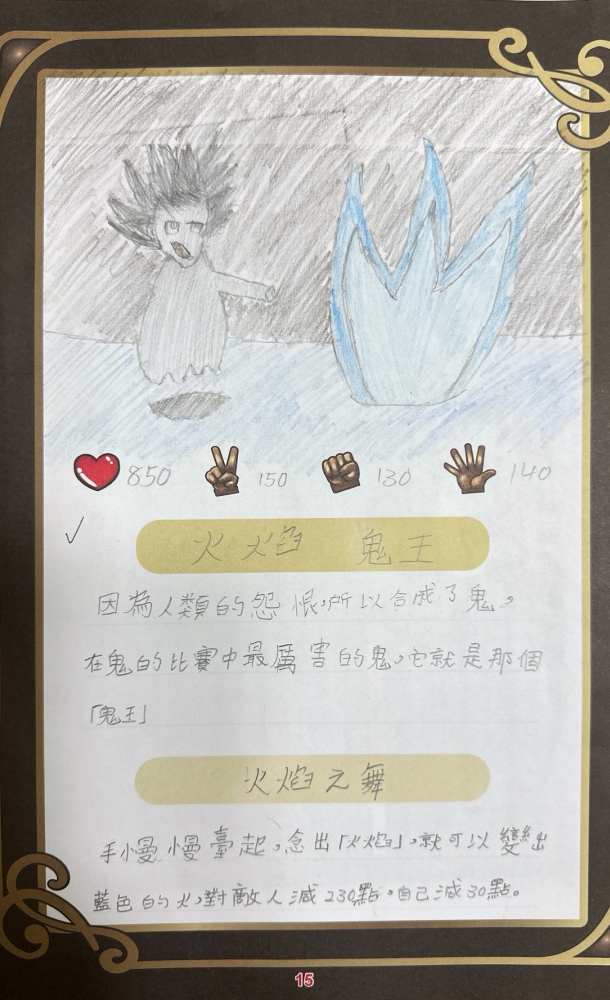 850 150 130 140
火焰 鬼王
因為人類的怨恨，所以合成了鬼，
在鬼的比賽中最厲害的鬼，它就是那個
「鬼王」
火焰之舞
手慢慢臺起，念出「火焰」，就可以變出
藍色的火，對敵人減230點，自己減30點。
15